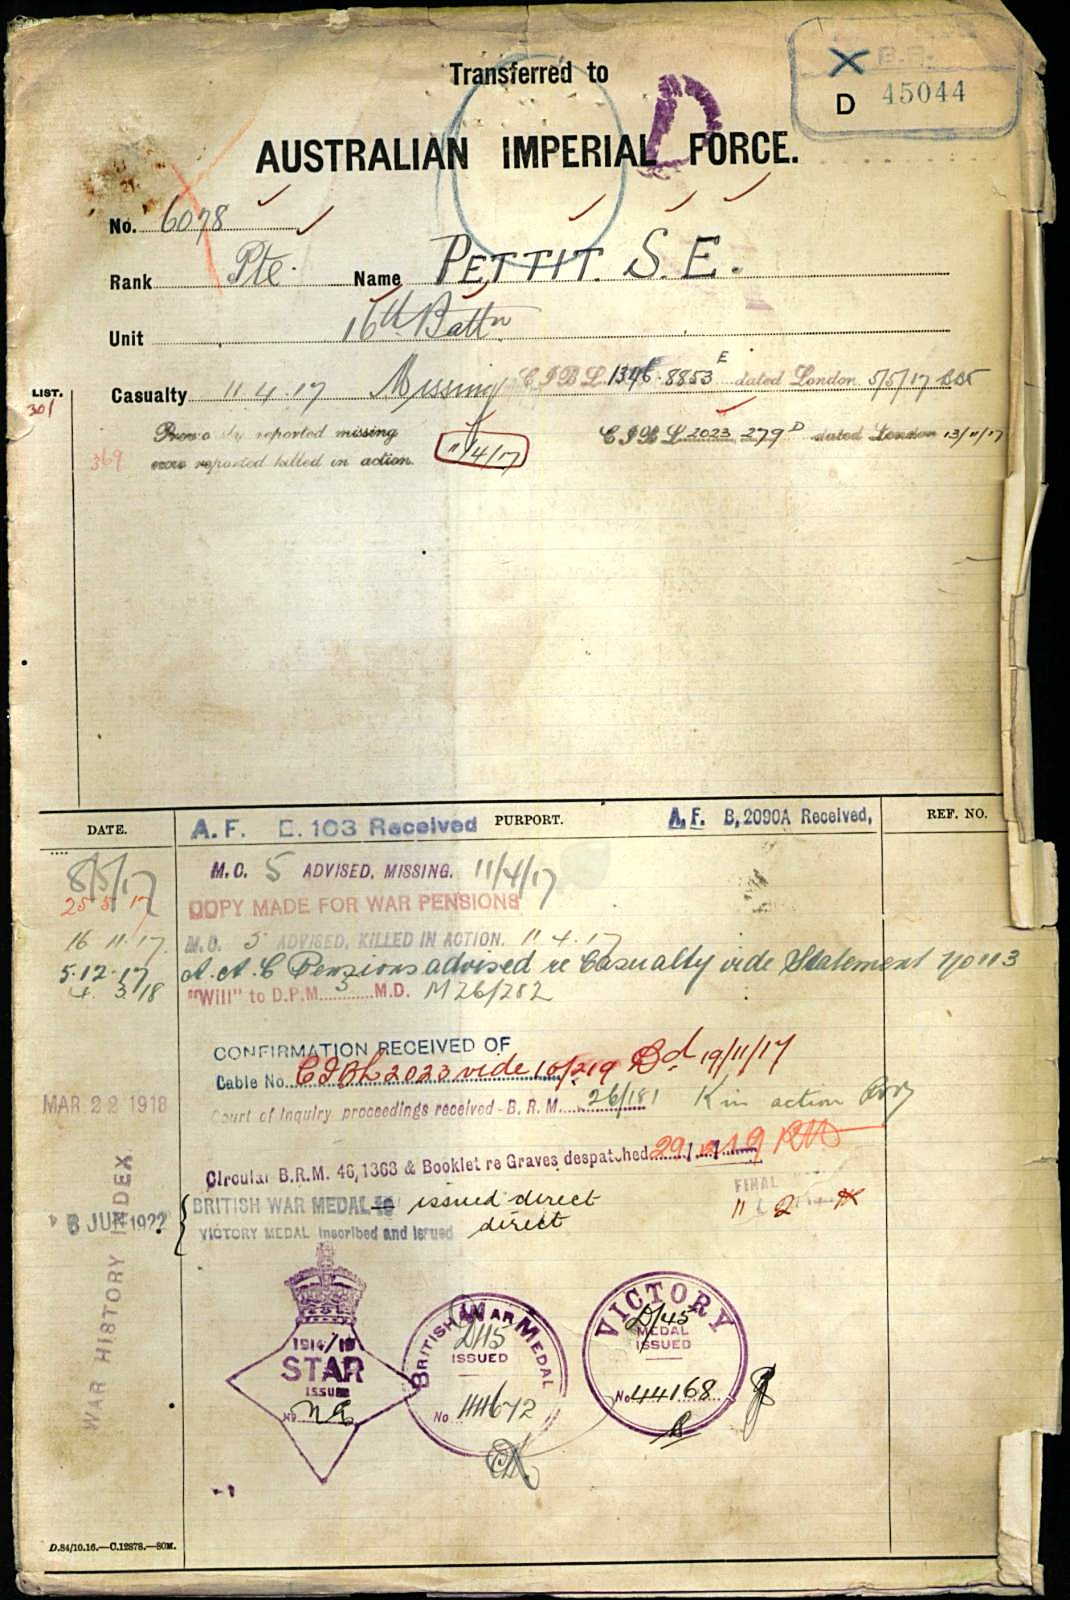 Transferred to
D 45044
AUSTRALIAN IMPERIAL FORCE.
No. 6078
Rank Pte. Name PETTIT. S. E.
Unit 16th Battn
LIST.
301
Casualty 11.4.17 Missing C I B L 1346 8853 E dated London 5/5/17
reported missing
369
now reported killed in action. 11/4/17
C I B L 2023 279 D dated London 13/11/17
DATE. PURPORT. REF. NO.
A. F. B. 103 Received A. F. B, 2090A Received,
8/5/17 M.C. 5 ADVISED, MISSING. 11/4/17
25 5 17 COPY MADE FOR WAR PENSIONS
16 11.17. M.C. 5 ADVISED, KILLED IN ACTION. 11 4.17
5.12.17 A.A.C Pensions advised re Casualty vide Statement No 113
4 3/18 "Will" to D.P.M. 5 M.D. M 26/282
CONFIRMATION RECEIVED OF
Cable No. C I B L 2023 vide 10/219 Dd 19/11/17
MAR 22 1918 Court of Inquiry proceedings received - B. R. M. 26/181 K in action
Circular B.R.M. 46,1363 & Booklet re Graves despatched 29
BRITISH WAR MEDAL issued direct
FINAL
8 JUN 1922 VICTORY MEDAL inscribed and issued direct
WAR HISTORY INDEX
1914/15
STAR
ISSUED
No. N.E.
BRITISH WAR MEDAL
D/15
ISSUED
No 44672
VICTORY
D/45
MEDAL
ISSUED
No 44168
D.84/10.16.—C.12878.—80M.